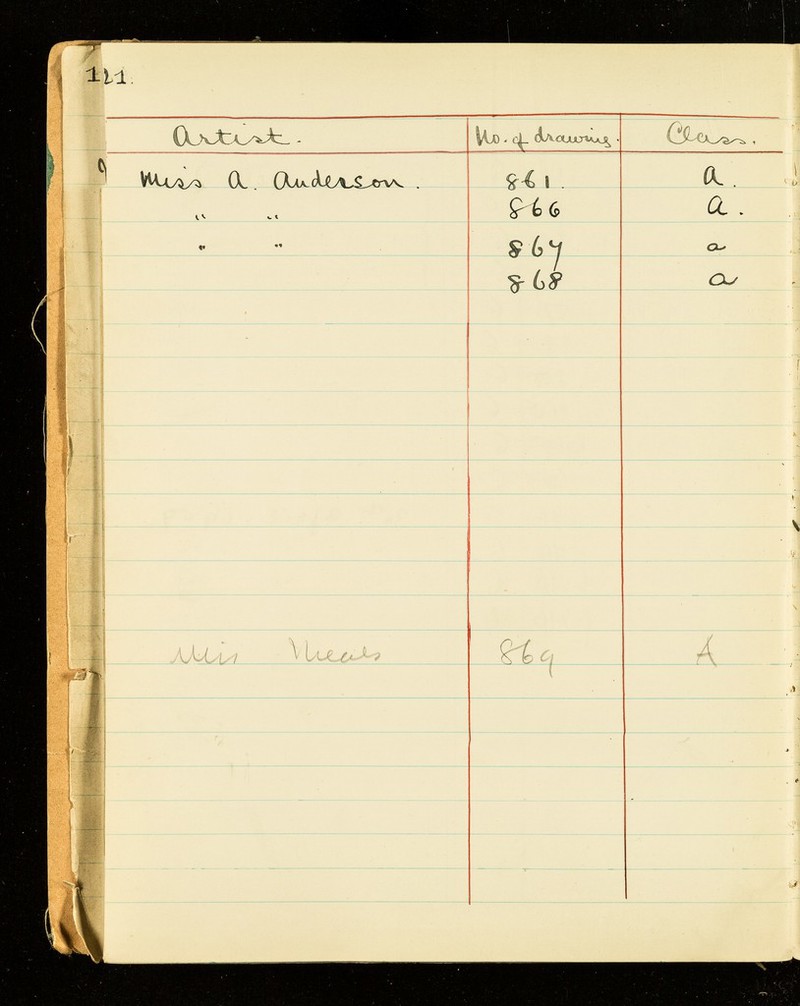 121.
Artist. No. of drawing. Class.
Miss A. Anderson. 861. A.
" " 866 A.
" " 867 a
868 a
Miss Meals 869 A